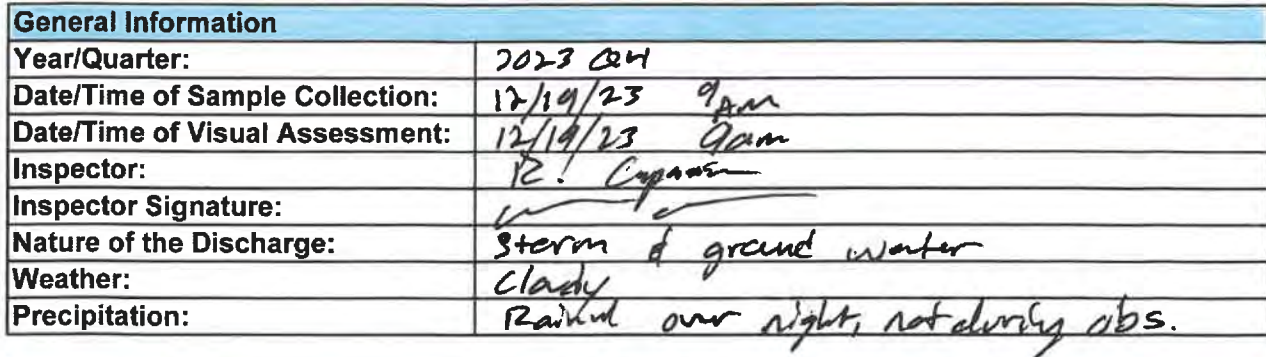 General Information
Year/Quarter: 2023 Q4
Date/Time of Sample Collection: 12/19/23 9AM
Date/Time of Visual Assessment: 12/19/23 9am
Inspector: R.
Inspector Signature:
Nature of the Discharge: Storm & ground water
Weather: Cloudy
Precipitation: Rained over night, not during obs.